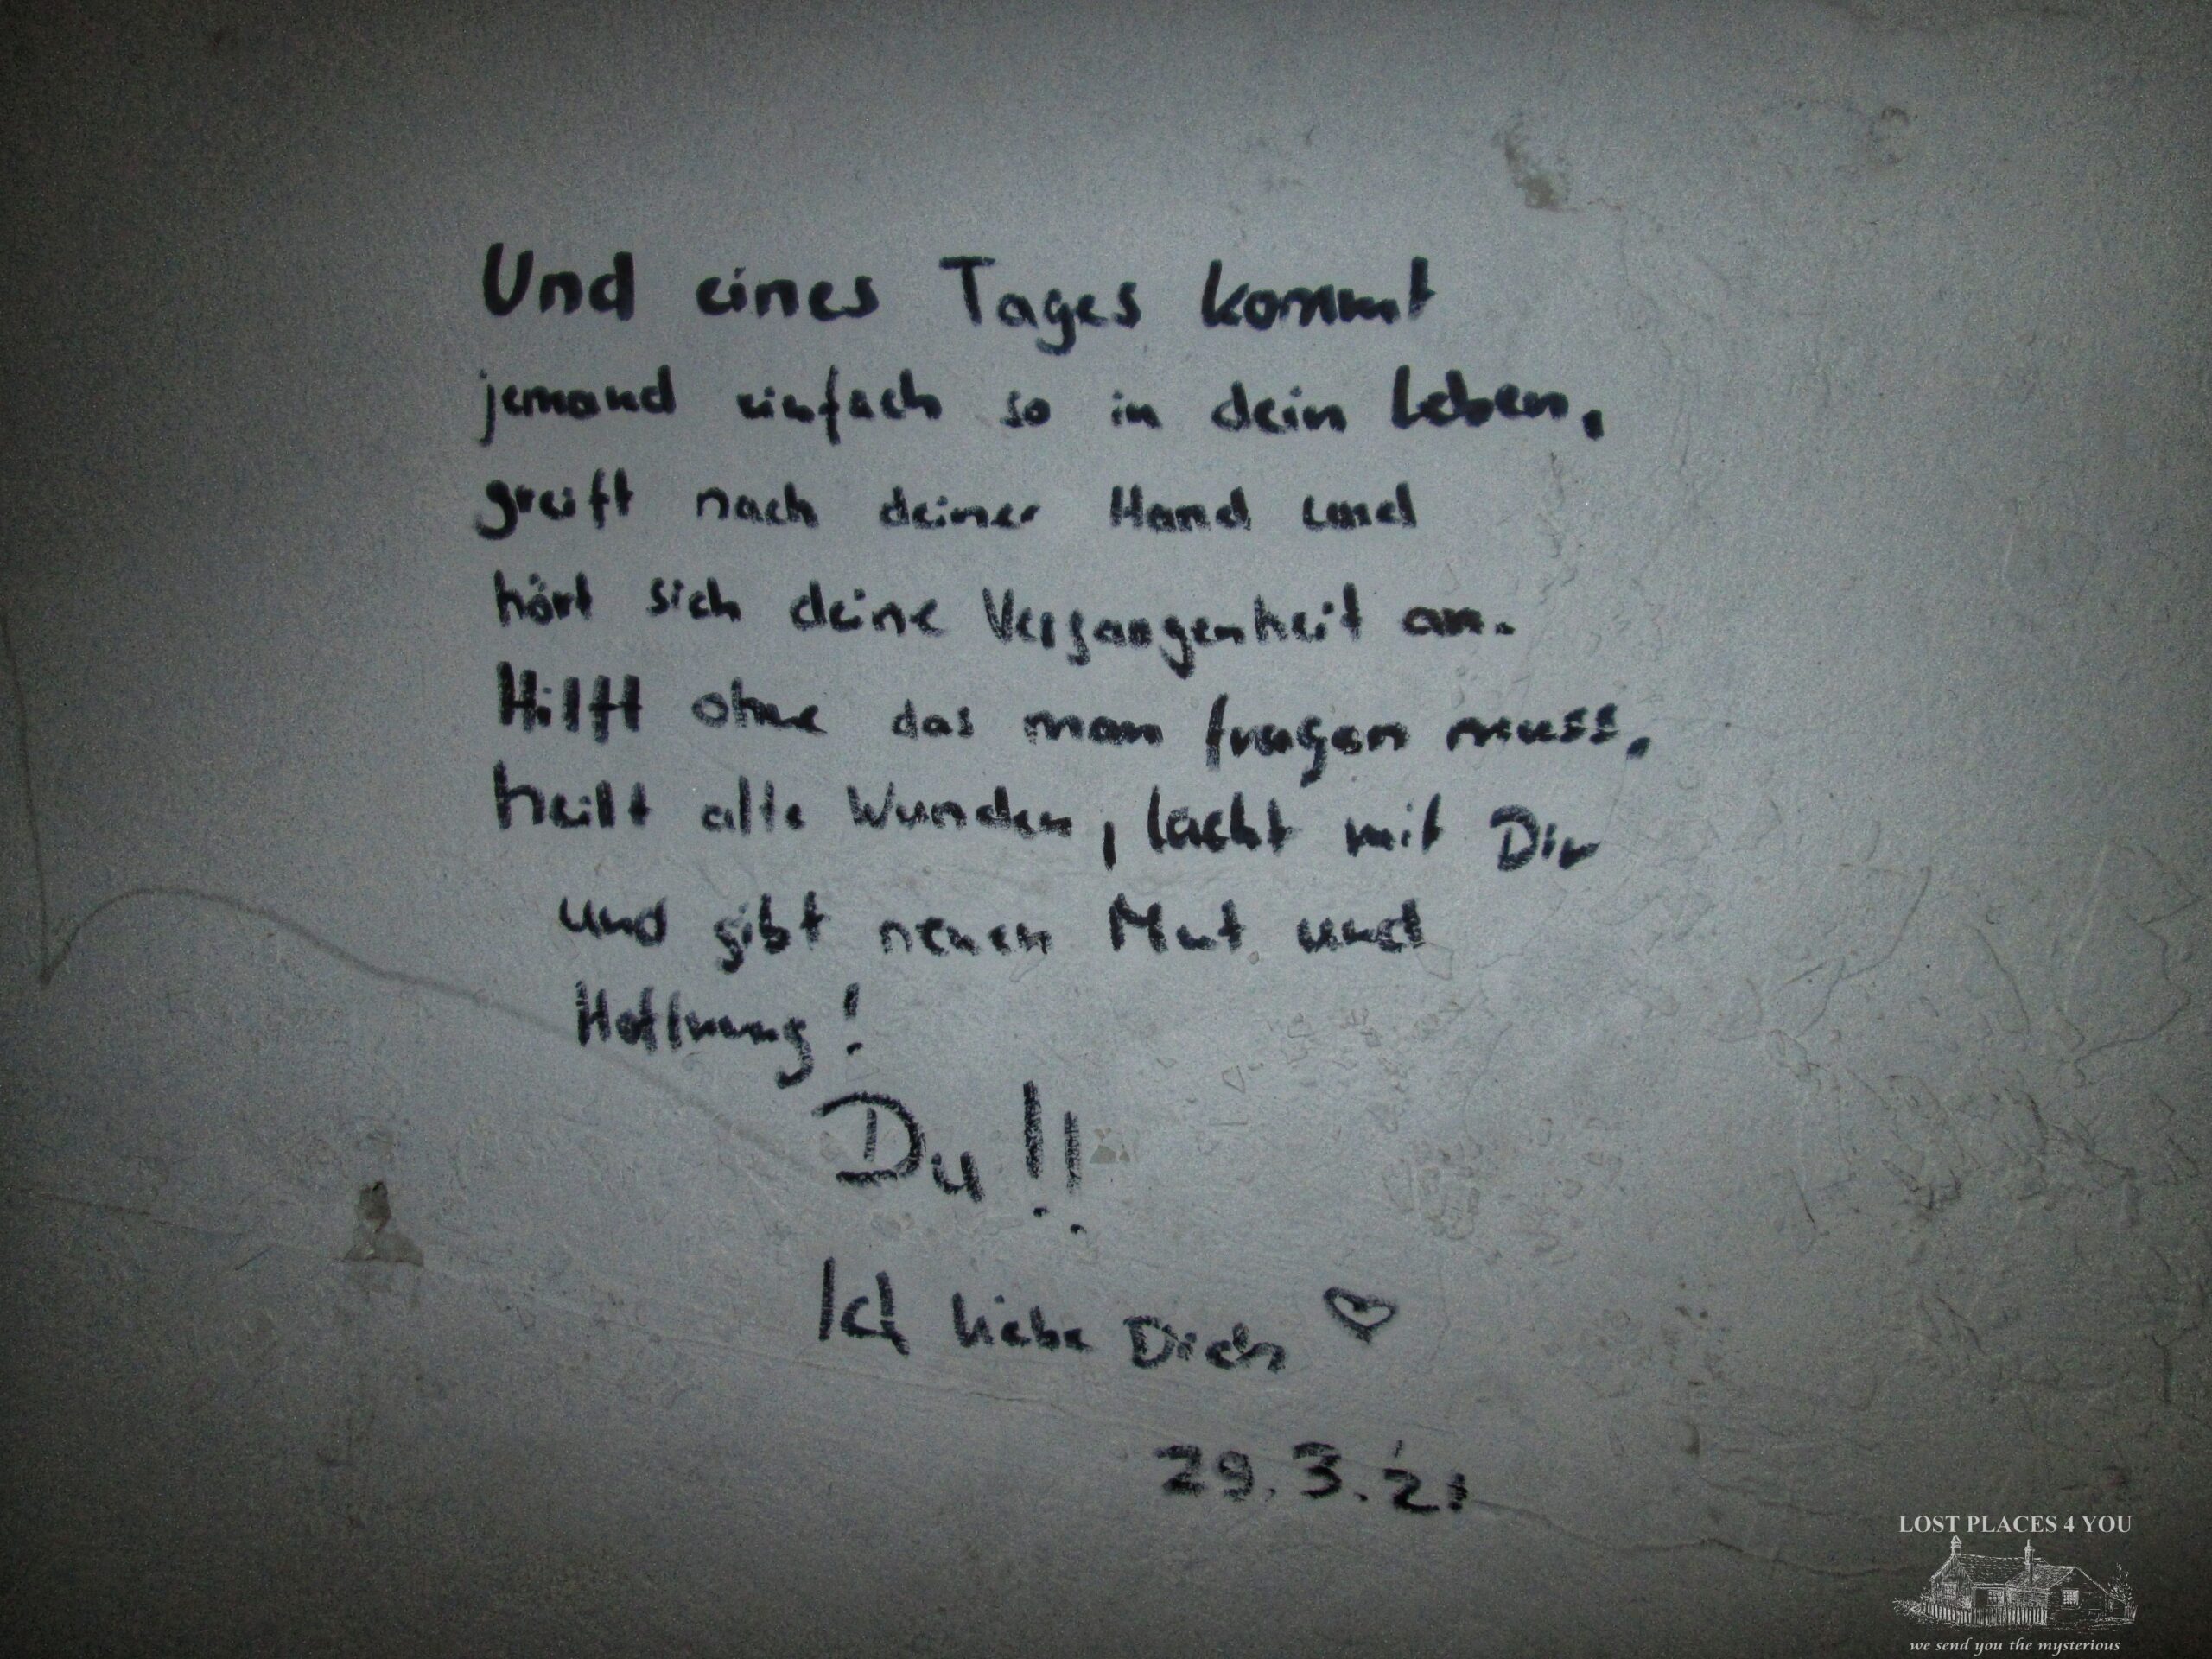 Und eines Tages kommt
jemand einfach so in dein Leben,
greift nach deiner Hand und
hört sich deine Vergangenheit an.
Hilft ohne das man fragen muss,
heilt alte Wunden, lacht mit Dir
und gibt neuen Mut und
Hoffnung!
Du!!
Ich liebe Dich ♡
29.3.'21
LOST PLACES 4 YOU
we send you the mysterious